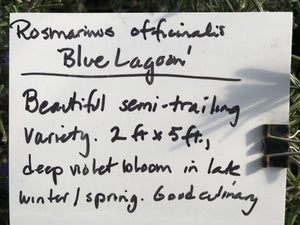 Rosmarinus officinalis
'Blue Lagoon'
Beautiful semi-trailing
variety. 2 ft x 5 ft.,
deep violet bloom in late
winter/spring. Good culinary